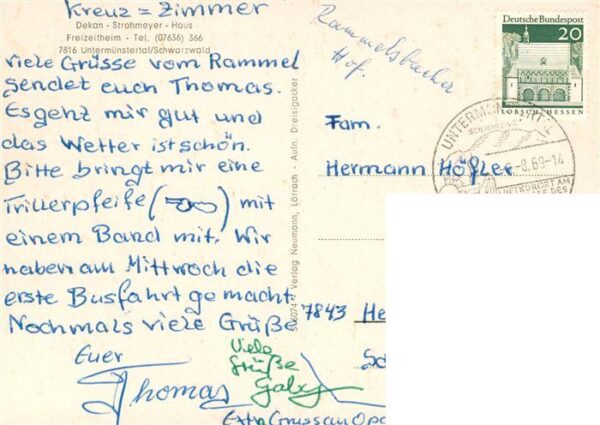 Kreuz = Zimmer
Dekan - Strohmeyer - Haus
Freizeitheim - Tel. (07636) 366
7816 Untermünstertal/Schwarzwald
viele Grüsse vom Rammel
sendet euch Thomas.
Es geht mir gut und
das Wetter ist schön.
Bitte bringt mir eine
Trillerpfeife ( ) mit
einem Band mit. Wir
haben am Mittwoch die
erste Busfahrt gemacht.
Nochmals viele Grüße
Euer
Thomas
Viele
Grüße
Gaby
Extra Gruss an Opa
Verlag Neumann, Lörrach - Aufn. Dreisigacker
Rammelsbacher
Hof.
Deutsche Bundespost
20
LORSCH/HESSEN
UNTERMÜNSTERTAL
SCHWARZWALD
-8.69-14
LUFTKURORT AM
DES
Fam.
Hermann Höfler
7843 He